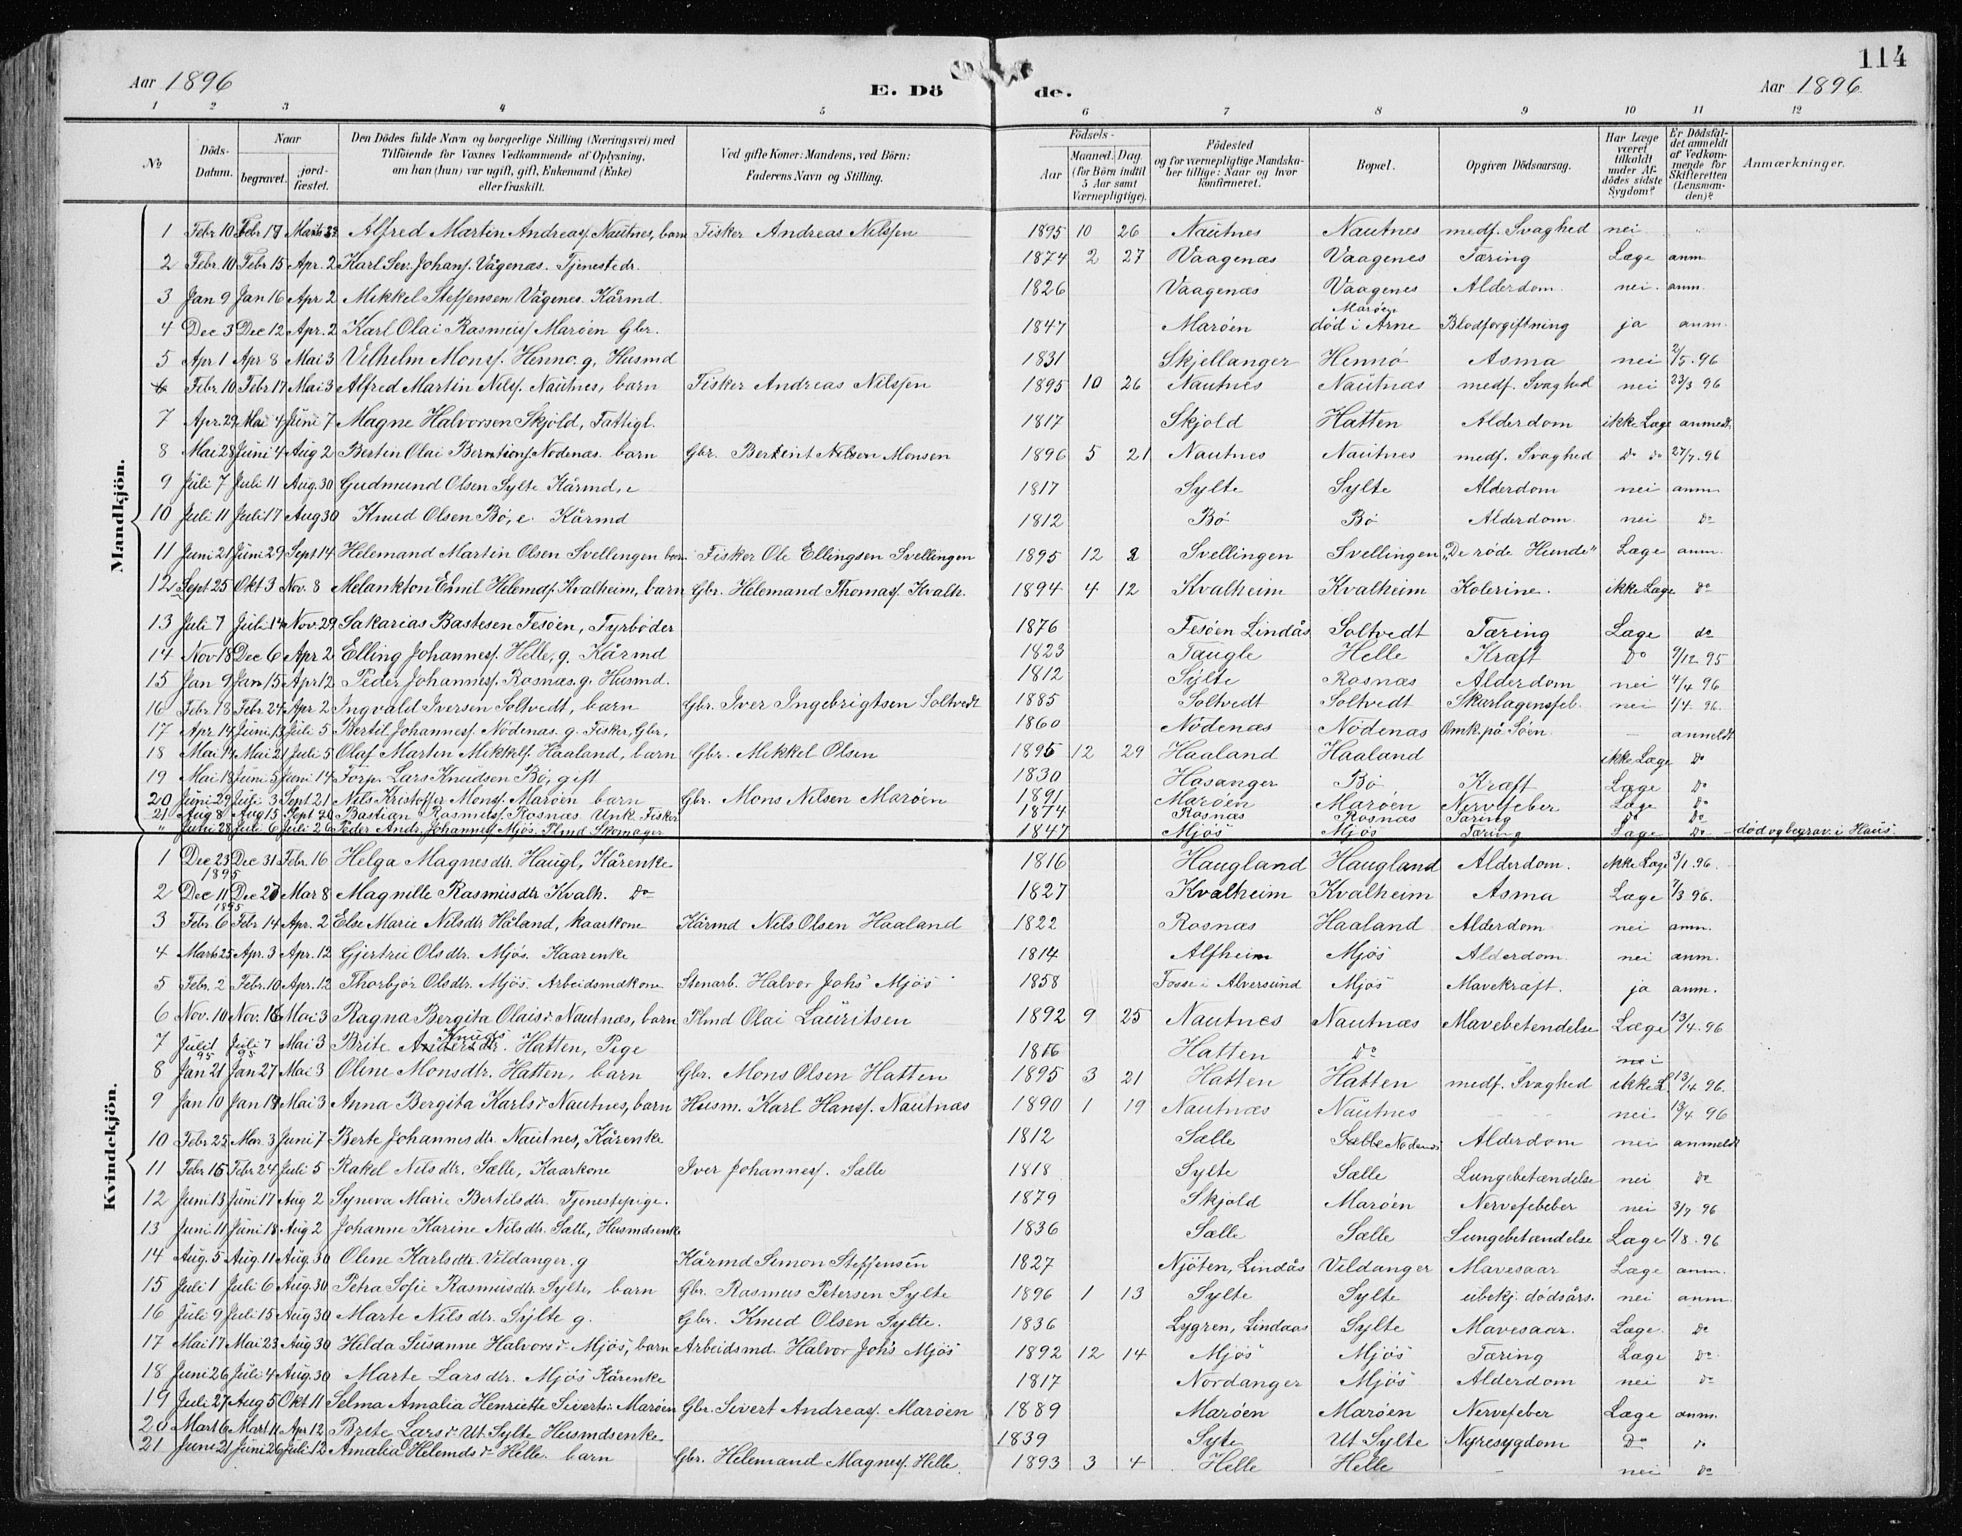 114
Aar 1896
E. Dö de.
Aar 1896
1 2 3 4 5 6 7 8 9 10 11 12
No
Döds-Datum.
Naar
begravet.
jord-fæstet.
Den Dödes fulde Navn og borgerlige Stilling (Næringsvei) med
Tilföiende for Voxnes Vedkommende af Oplysning,
om han (hun) var ugift, gift, Enkemand (Enke)
eller fraskilt.
Ved gifte Koner: Mandens, ved Börn:
Faderens Navn og Stilling.
Födsels-
Aar
Maaned. Dag.
(for Börn indtil
5 Aar samt
Værnepligtige).
Födested
og for værnepligtige Mandska-
ber tillige: Naar og hvor
konfirmeret.
Bopæl.
Opgiven Dödsaarsag.
Har Læge
været
tilkaldt
under Af-
dödes sidste
Sygdom?
Er Dödsfal-
det anmeldt
af Vedkom-
mende for
Skifteretten
(Lensman-
den)?
Anmærkninger.
Mandkjön.
1 Febr 10 Febr 17 Marts 22 Alfred Martin Andreasf. Nautnes, barn Fisker Andreas Nilssen 1895 10 26 Nautnes Nautnes medf. Svaghed nei
2 Febr. 10 Febr 15 Apr. 2 Karl Sev. Johansf. Vågenæs. Tjenestedr. 1874 2 27 Vaagenæs Vaagenes Tæring Læge anm.
3 Jan 9 Jan 16 Apr 2 Mikkel Steffensen Vågenes. Kårmd. 1826 Vaagenæs Vaagenes Alderdom. nei. anm.
4 Dec 3 Dec 12 Apr. 2 Karl Olai Rasmusf. Marøen Gbr. 1847 Marøen Marøen død i Arne Blodforgiftning ja anm.
5 Apr 1 Apr 8 Mai 3 Vilhelm Monsf. Henno. g. Husmd 1831 Skjellanger Hennö Asma nei 2/5. 96
6 Febr. 10 Febr 17 Mai 3 Alfred Martin Nilsf. Nautnes, barn Fisker Andreas Nilssen 1895 10 26 Nautnes Nautnæs medf. Svaghed nei 23/3 96
7 Apr. 29 Mai 4 Juni 7 Magne Halvorsen Skjold, Fattigl. 1817 Skjold Hatten Alderdom ikke Læge anmeldt.
8 Mai 28 Juni 4 Aug 2 Bertin Olai Berntionsf. Nodenæs. barn Gbr. Bertint Nilsen Monsen 1896 5 21 Nautnes Nautnes medf. Svaghed Do do 27/7. 96
9 Juli 7 Juli 11 Aug. 30 Gudmund Olsen Sylte Kårmd, e 1817 Sylte Sylte Alderdom nei anm.
10 Juli 11 Juli 17 Aug 30 Knud Olsen Bö, e. Kårmd 1812 Bö Bö Alderdom. nei do
11 Juni 21 Juni 29 Sept 14 Helemand Martin Olsen Svellingen barn Fisker Ole Ellingsen Svellingen 1895 12 2 Svellingen Svellingen "De røde Hunde" Læge anm.
12 Sept 25 Okt 3 Nov. 8 Melankton Emil Helemdsf. Kvalheim, barn Gbr. Helemand Thomasf. Kvalh. 1894 4 12 Kvalheim Kvalheim Kolerine. ikke Læge do
13 Juli 7 Juli 14 Nov. 29 Sakarias Bastesen Fesöen, Fyrbøder 1876 Fesöen Lindås Soltvedt Tæring Læge do
14 Nov 18 Dec 6 Apr 2 Elling Johannesf. Helle, g. Kårmd 1823 Taugle Helle Kræft Do 9/12. 95
15 Jan 9 Jan 15 Apr 12 Peder Johannesf. Rosnæs. g. Husmd. 1812 Sylte Rosnæs Alderdom nei 4/4 96
16 Febr. 18 Febr. 24 Apr 2 Ingvald Iversen Soltvedt, barn Gbr. Iver Ingebrigtsen Soltvedt 1885 Soltvedt Soltvedt Skarlagensfeb. nei 1/4. 96.
17 Apr. 14 Juni 13 Juli 5 Bertil Johannesf. Nödenæs. g. Fisker, Gbr. 1860 Nödenæs Nödenæs Omk. på Søen. — anmeldt
18 Mai 14 Mai 21 Juli 5 Olaf Martin Mikkelsf. Haaland, barn Gbr. Mikkel Olsen 1895 12 29 Haaland Haaland ikke Læge do
19 Mai 18 Juni 5 Juni 14 Forp. Lars Knudsen Bö, gift 1830 Hosanger Bö Kræft Læge do
20 Juni 29 Juli 3 Sept 21 Nils Kristoffer Monsf. Marøen barn Gbr. Mons Nilsen Marøen 1891 Marøen Marøen Nervefeber Læge do
21 Aug 8 Aug 15 Sept 20 Bastian Rasmusf. Rosnæs Unk. Fisker 1874 Rosnæs Rosnæs Tæring Do do
" Juni 28 Juli 6 Juli 26 Peder Andr. Johannesf. Mjös. Plmd Skomager 1847 Mjös Mjös Tæring Læge Do død og begrav. i Haus.
Kvindekjön.
1 Dec 23 1895 Dec 31 Febr. 16 Helga Magnesdtr. Haugl, Kårenke 1816 Haugland Haugland Alderdom. ikke Læge 3/1. 96.
2 Dec 11 1895 Dec 27 Mar 8 Magnille Rasmusdtr. Kvalh. Do 1827 Kvalheim Kvalheim Asma Læge 7/3 96.
3 Febr. 6 Febr 14 Apr. 2 Else Marie Nilsdtr Håland, kaarkone Kårmd Nils Olsen Haaland 1822 Rosnæs Haaland Alderdom nei anm.
4 Marts 25 Apr. 3 Apr. 12 Gjertrui Olsdtr. Mjös. Kaarenke 1814 Alfheim Mjös Alderdom. nei anm.
5 Febr. 2 Febr. 10 Apr. 12 Thorbjør Olsdtr. Mjös. Arbeidsmdkone Stenarb. Halvor Johs Mjös 1858 Fosse i Alversund Mjös Mavekræft. ja anm.
6 Nov. 10 Nov. 16 Mai 3 Ragna Bergita Olaisdr. Nautnæs, barn Plmd Olai Lauritsen 1892 9 25 Nautnes Nautnæs Mavebetendelse Læge 13/4. 96
7 Juli 1 95 Juli 7 95 Mai 3 Brite Knuds dtr. Hatten, Pige 1816 Hatten Do nei
8 Jan 21 Jan 27 Mai 3 Oline Monsdtr. Hatten, barn Gbr. Mons Olsen Hatten 1895 3 21 Hatten Hatten medf. Svaghed ikke L. 13/4 96
9 Jan 10 Jan 19 Mai 3 Anna Bergita Karlsdr Nautnes, barn Husm. Karl Hansf. Nautnæs 1890 1 19 Nautnæs Nautnes nei 13/4. 96
10 Febr 25 Mar. 3 Juni 7 Berte Johannesdtr. Nautnes, Kårenke 1812 Sælle Sælle Nødenæs Alderdom nei anmeldt
11 Febr 16 Febr 24 Juli 5 Rakel Nilsdtr. Sælle, Kaarkone Iver Johannesf. Sælle 1818 Sylte Sælle Lungebetændelse nei do
12 Juni 13 Juni 17 Aug 2 Syneva Marie Bertelsdtr. Tjenestepige. 1879 Skjold Marøen Nervefebeber nei 3/7 96
13 Juni 11 Juni 18 Aug 2 Johanne Karine Nilsdtr Sælle, Husmdsenke 1836 Sælle Sælle Lungebetændelse Læge 1/8. 96
14 Aug. 5 Aug. 11 Aug. 30 Oline Karlsdtr. Vildanger. g Kårmd Simon Steffensen 1827 Njöten, Lindås Vildanger Mavesaar Læge anm.
15 Juli 1 Juli 6 Aug. 30 Petra Sofie Rasmusdtr Sylte, barn Gbr. Rasmus Petersen Sylte 1896 1 13 Sylte Sylte ubekj. dødsårs. nei anm
16 Juli 9 Juli 15 Aug 30 Marte Nilsdtr. Sylte g. Gbr. Knud Olsen Sylte. 1836 Lygren, Lindaas Sylte Mavesaar. Læge. do
17 Mai 17 Mai 23 Aug 30 Hilda Susanne Halvorsdr. Mjös, barn Arbeidsmd. Halvor Johs Mjös 1892 12 14 Mjös Mjös Tæring Læge Do
18 Juni 26 Juli 4 Aug. 30 Marte Larsdtr. Mjös Kårenke 1817 Nordanger Mjös Alderdom nei do
19 Juli 27 Aug 5 Okt 11 Selma Amalia Henriette Sivertsd. Marøen Gbr. Sivert Andreasf. Marøen 1889 Marøen Marøen Nervefeber Læge anm.
20 Mart 6 Mart 11 Apr 12 Brite Larsdr Ut Sylte Husmdsenke 1839 Sylte Ut Sylte Nyresygdom Do do
21 Juni 21 Juni 26 Juli 12 Amalia O Helemdsdr Helle. barn Gbr. Helemand Magnesf. Helle. 1893 3 4 Helle Helle — nei do